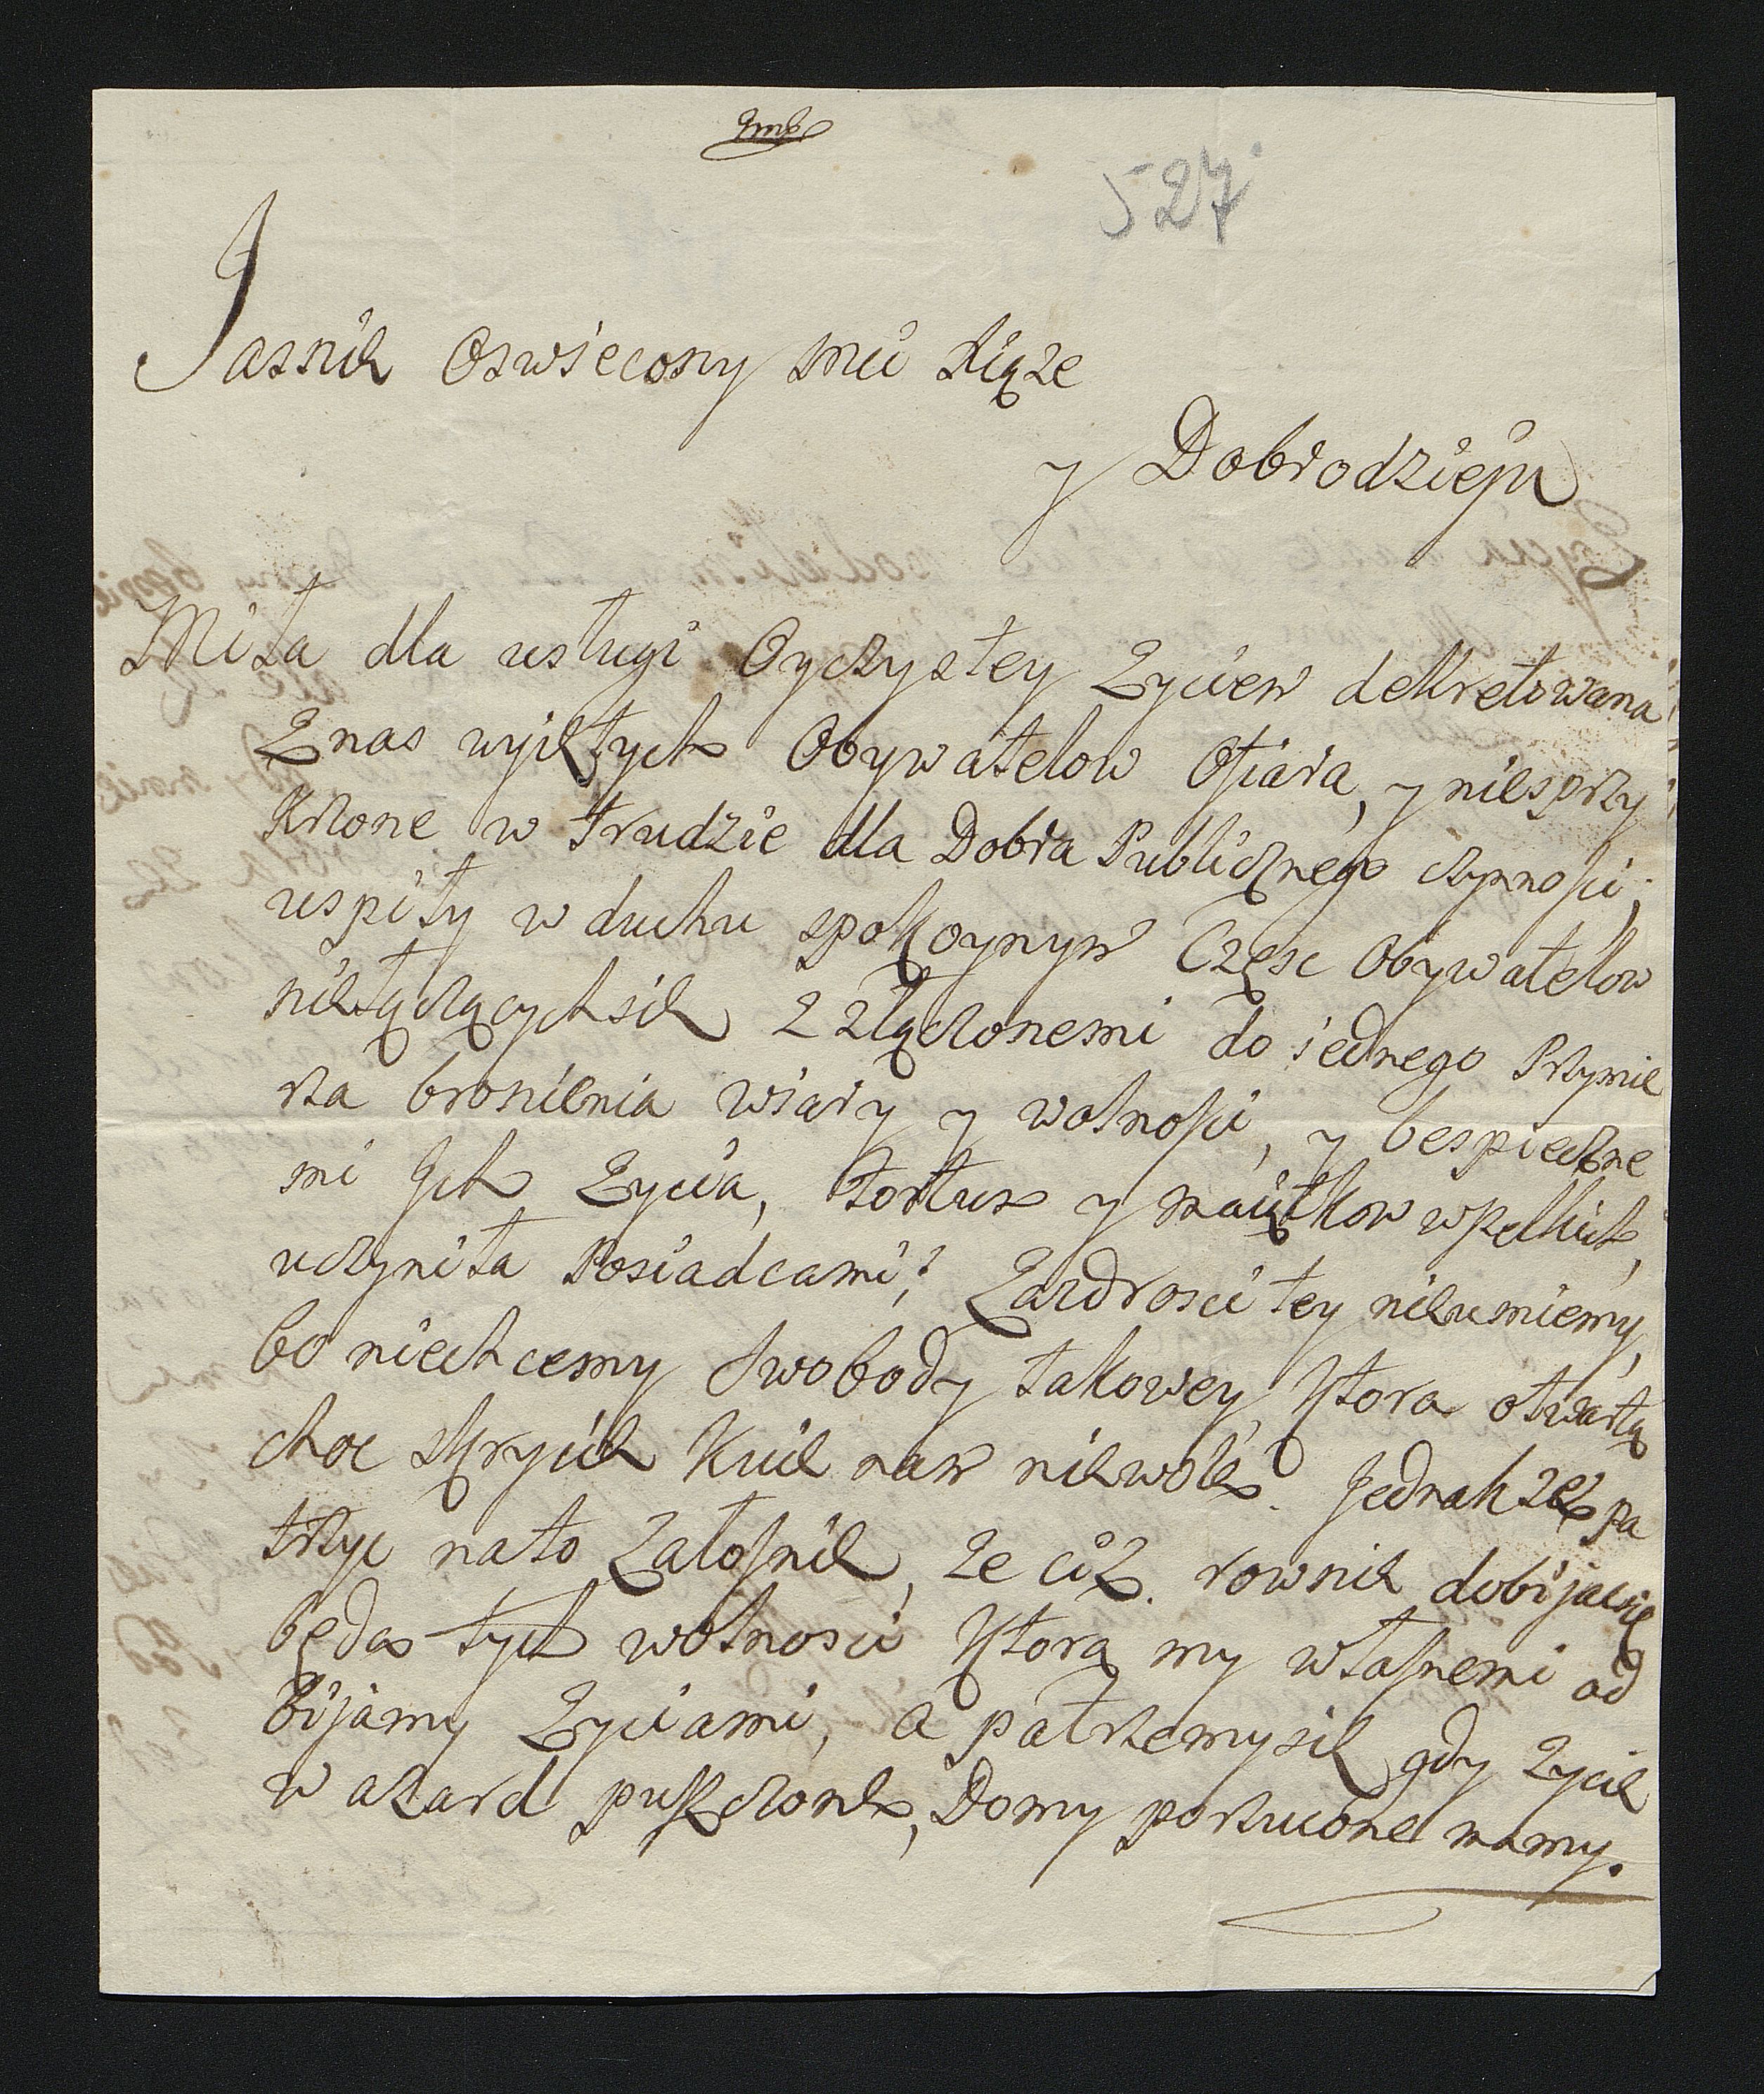 527
Jasnie Oswiecony Mci Xiąze
y Dobrodzieju
Miła dla usługi Oyczystey Zyciem dekretowana
Z nas wyisłych Obywatelow Ofiara, y niesprzy
Krzone w trudzie dla Dobra Publicznego czynnosci;
uspiły w duchu spokoynym Częsc Obywatelow
niełączącychsie z złączonemi do iednego Przymie
rza bronienia wiary y wolnosci, y bespieczne
mi Ich Zycia, fortun y maiątkow wszelkich,
uczyniła Posiadcami; Zazdrosci tey nieumiemy,
bo niechcemy Swobody takowey, ktora otwartą
choc skrycie Kuie nam niewolę. Jednak ze pa
trzyc nato Załosnie, ze ciz. rownie dobijacsię
będą tych wolnosci ktorą my własnemi od
bijamy Zyciami, a patrzemysie gdy Zycie
w azard puszczone, Domy porzucone mamy.